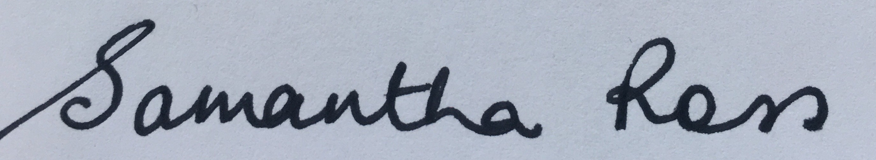 Samantha Ross